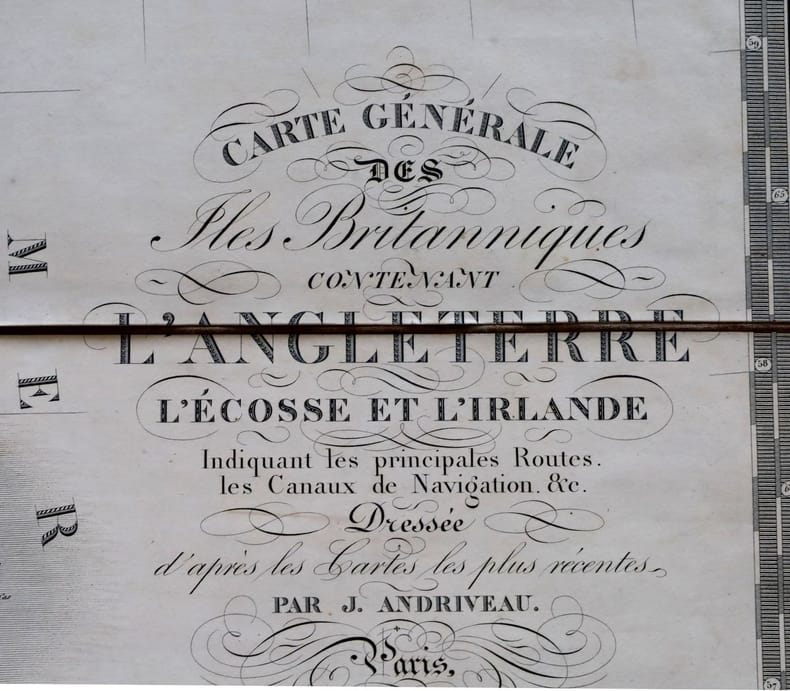 CARTE GÉNÉRALE
DES
Iles Britanniques
CONTENANT
L'ANGLETERRE
L'ÉCOSSE ET L'IRLANDE
Indiquant les principales Routes.
les Canaux de Navigation. &c.
Dressée
d'après les Cartes les plus récentes
PAR J. ANDRIVEAU.
Paris,
M
E
R
59
65
58
57